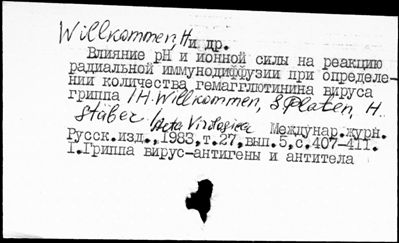 Willkommen, H и др.
Влияние рН и ионной силы на реакцию
радиальной иммунодиффузии при определе-
нии количества гемагглютинина вируса
гриппа /H. Willkommen, S. Platen, H.
Stäber // Acta Virologica Междунар.журн.
Русск.изд.,1983,т.27,вып.5,с.407-411.
1.Гриппа вирус-антигены и антитела